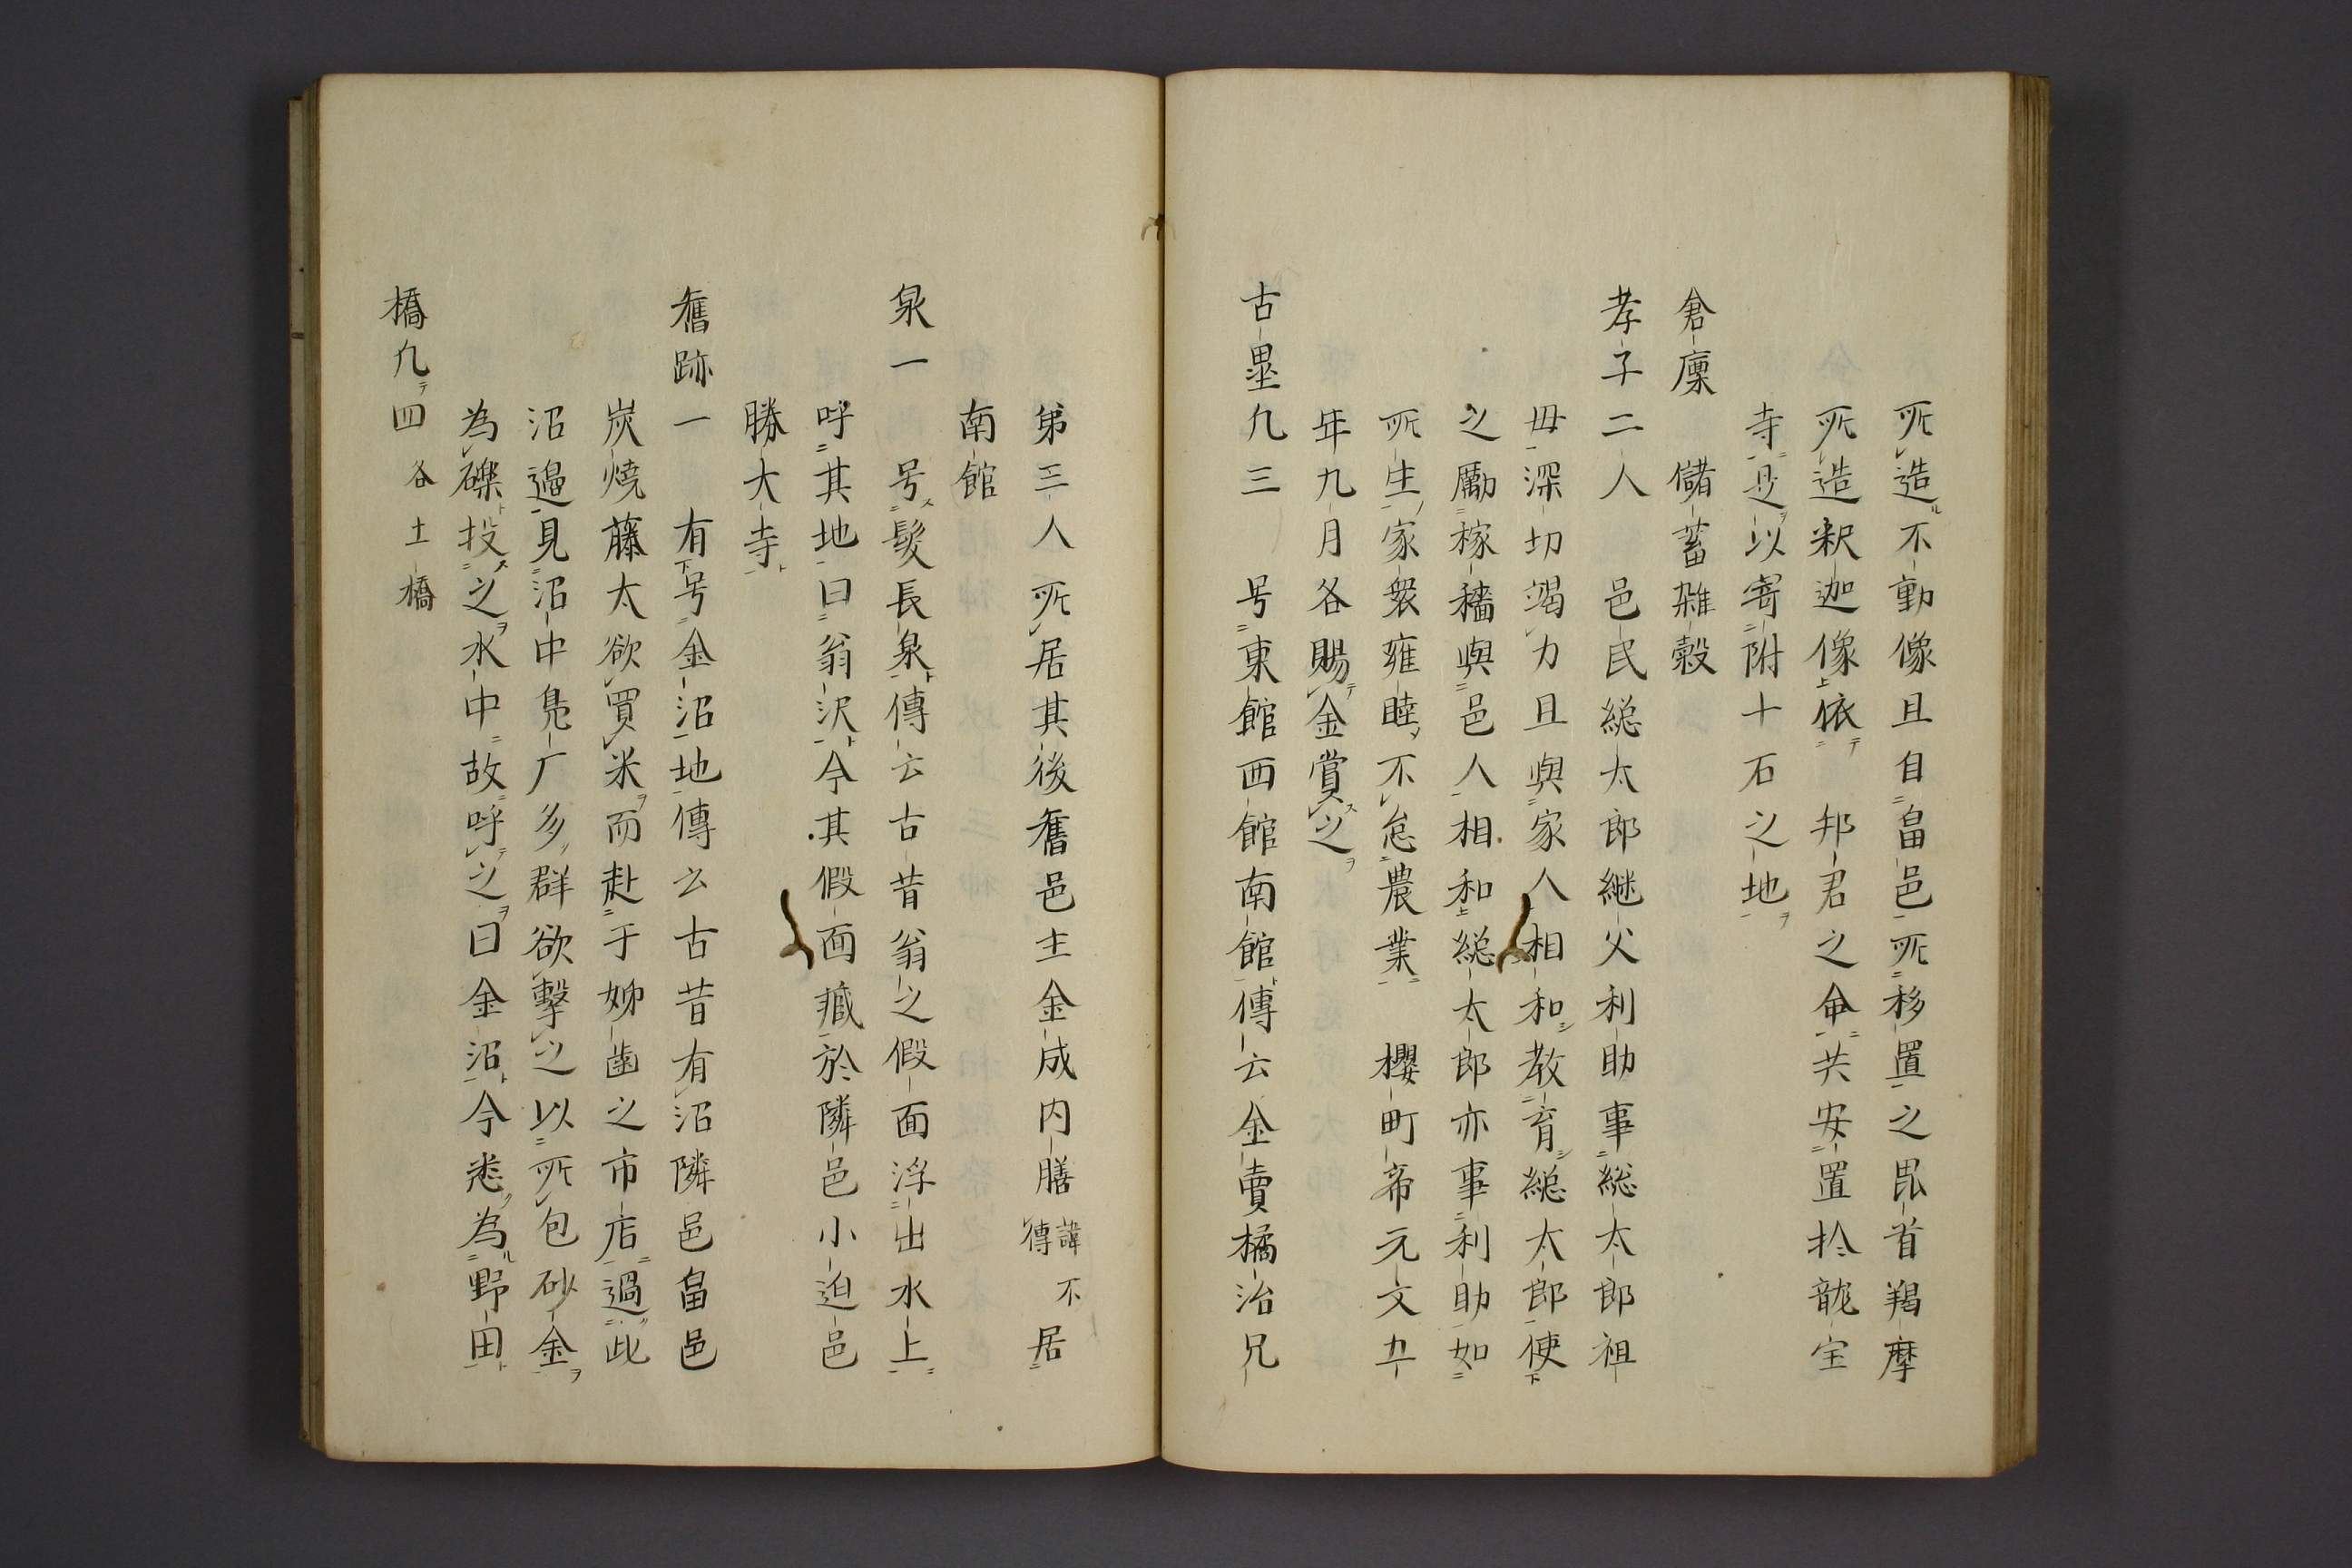 所造不動像且自畠邑所移置之毘首羯摩
所造釈迦像依　邦君之命共安置於龍宝
寺是以寄附十石之地
倉廩　儲蓄雑穀
孝子二人　邑民総太郎継父利助事総太郎祖
母深切竭力且與家人相和教育総太郎使
之勵稼穡與邑人相和総太郎亦事利助如
所生家衆雍睦不怠農業　櫻町帝元文五
年九月各賜金賞之
古塁凡三　号東館西館南館傳云金賣橘治兄
第三人所居其後舊邑主金成内膳諱不傳居
南館
泉一　号髪長泉傳云古昔翁之假面浮出水上
呼其地曰翁沢今其假面蔵於隣邑小迫邑
勝大寺
舊跡一　有号金沼地傳云古昔有沼隣邑畠邑
炭焼藤太欲買米而赴于姉歯之市店過此
沼邉見沼中鳧厂多群欲撃之以所包砂金
為礫投之水中故呼之曰金沼今悉為野田
橋凡四　各土橋